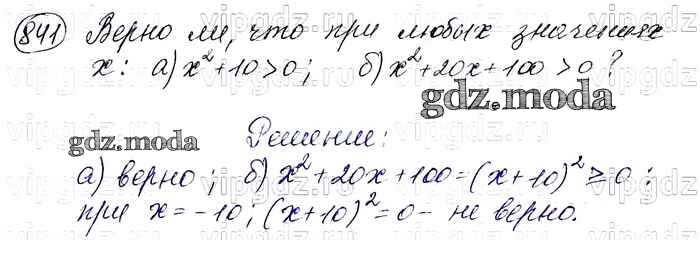 841 Верно ли, что при любых значениях
x: а) x²+10>0; б) x²+20x+100>0?
gdz.moda
gdz.moda
Решение:
а) верно; б) x²+20x+100=(x+10)²≥0;
при x=-10; (x+10)²=0- не верно.